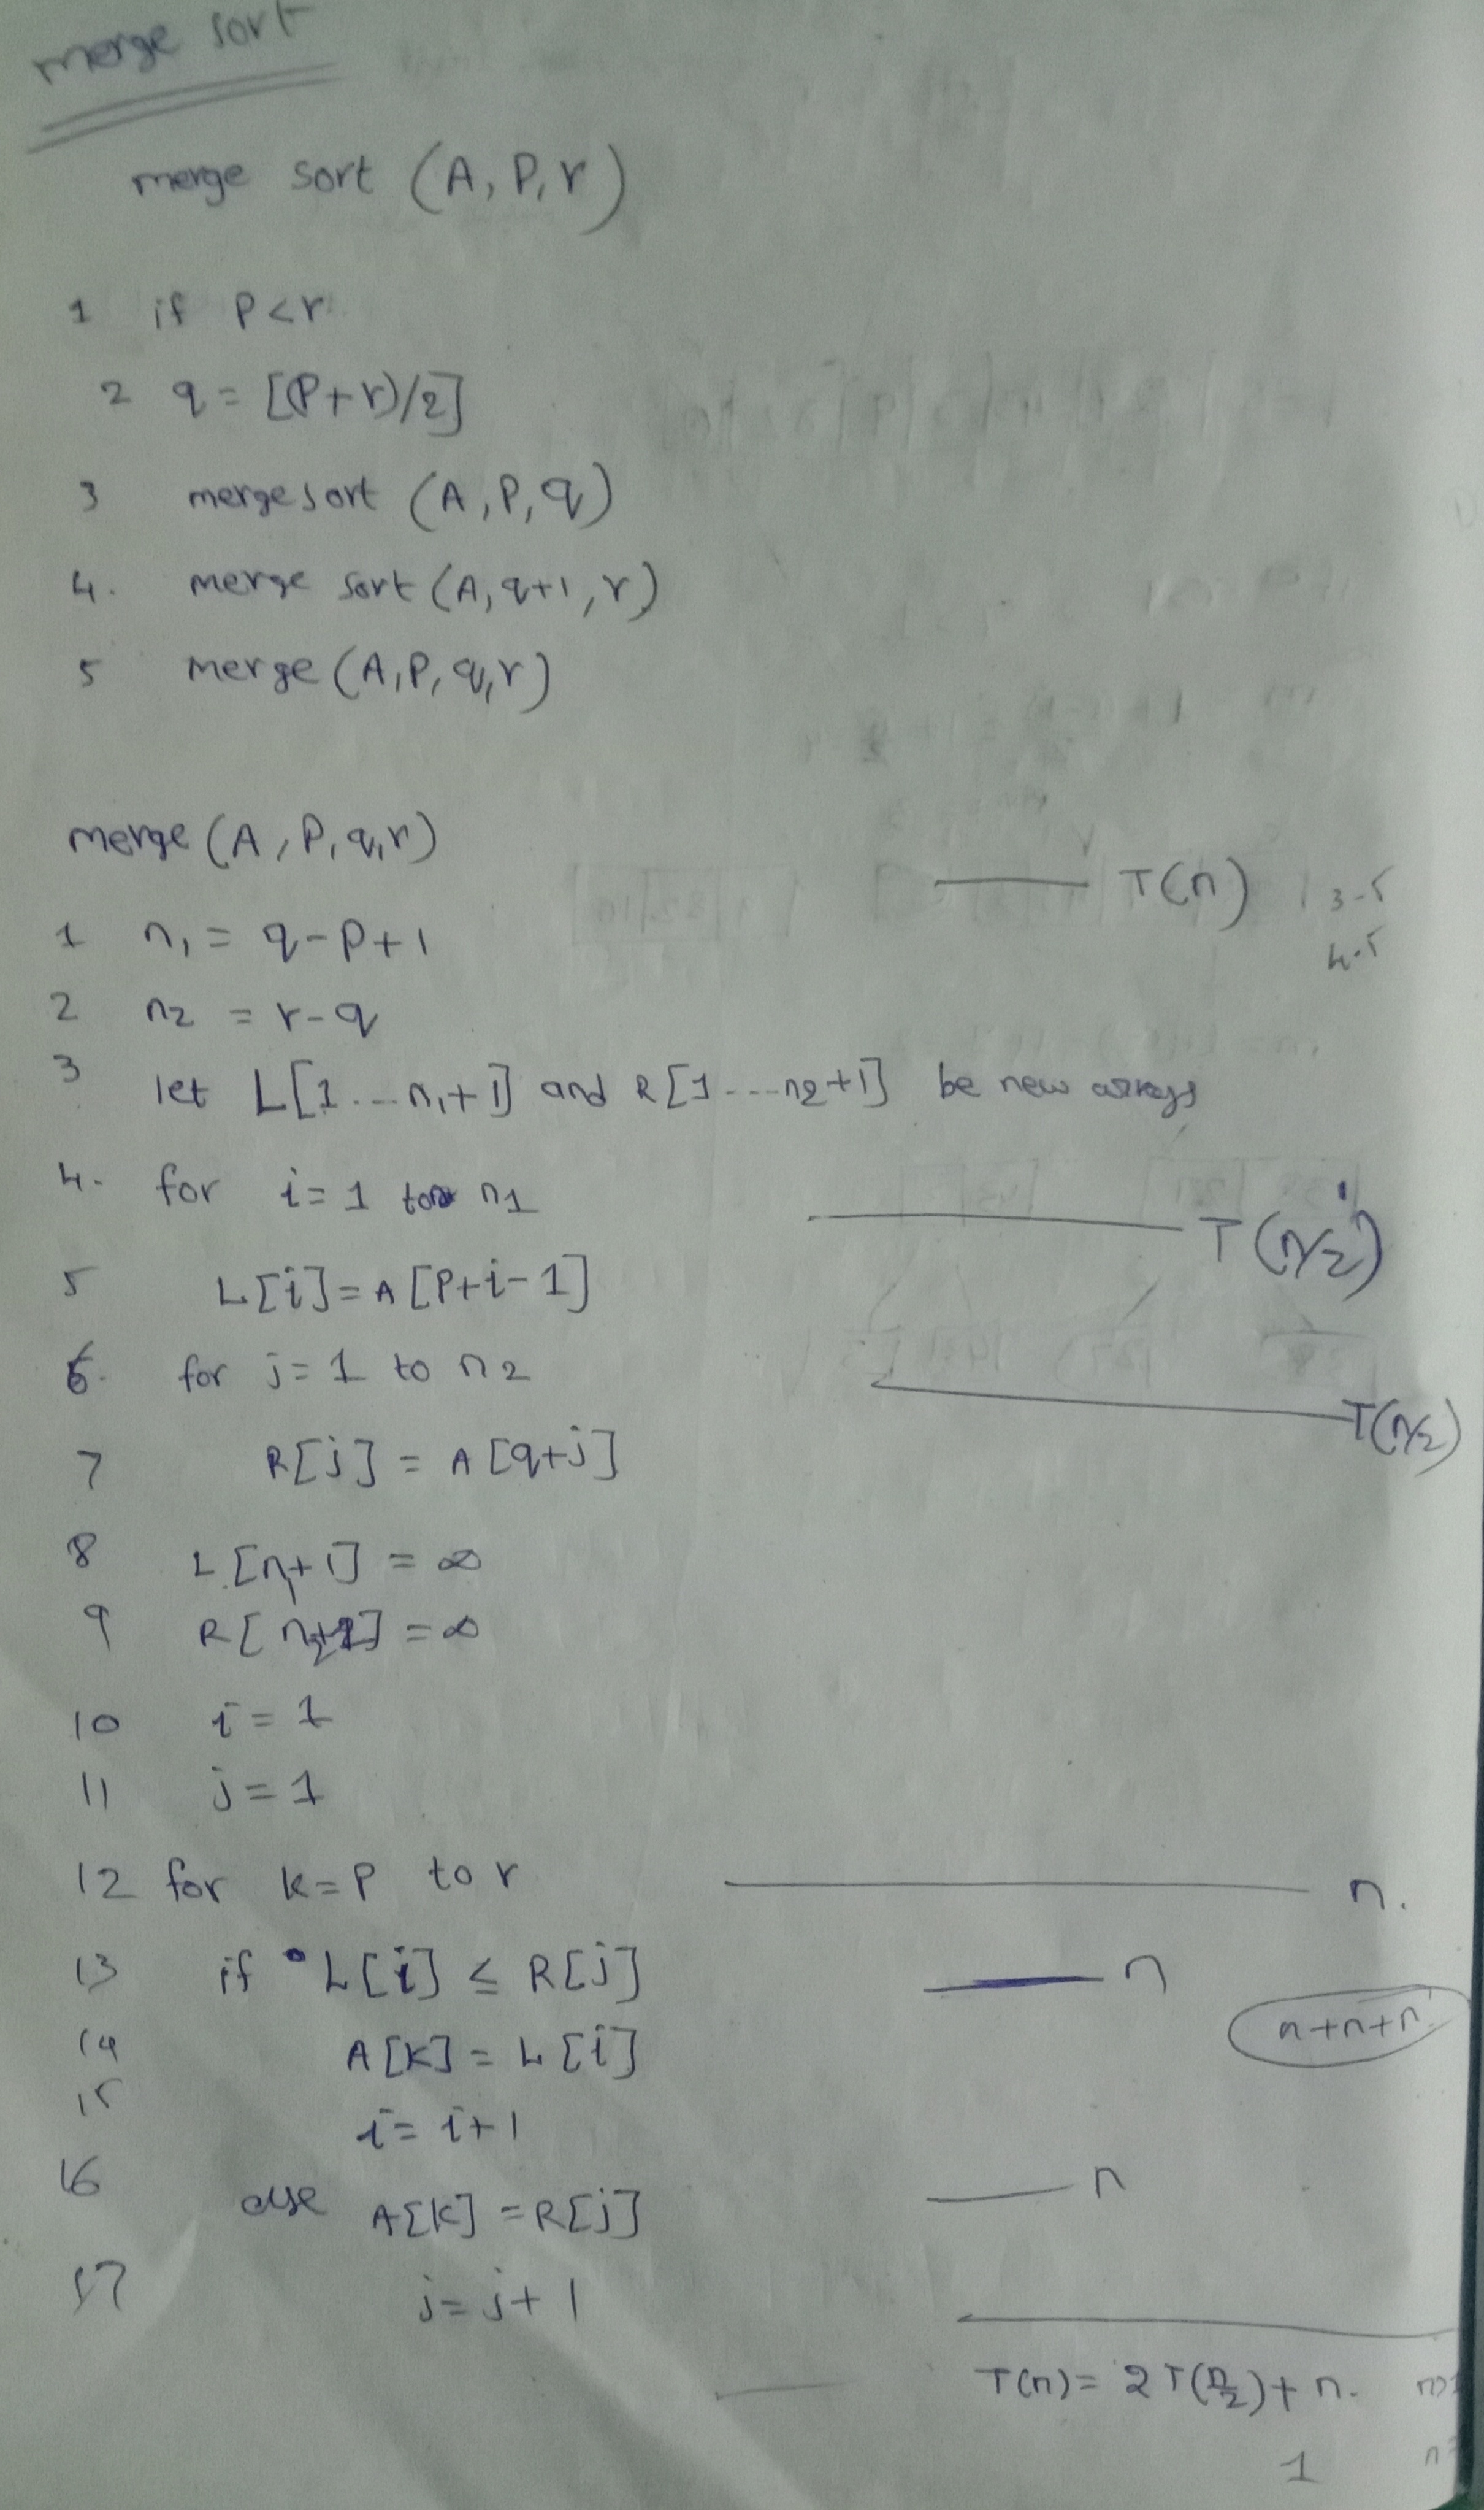 merge sort
merge sort (A, P, r)
1 if P<r
2 q = [(P+r)/2]
3 mergesort (A, P, q)
4. merge sort (A, q+1, r)
5 merge (A, P, q, r)
merge (A, P, q, r)
T(n) 3-5
4-5
1 n1 = q-p+1
2 n2 = r-q
3 let L[1...n1+1] and R[1...n2+1] be new arrays
4. for i=1 to n1 T(n/2)
5 L[i]=A[P+i-1]
6. for j=1 to n2 T(n/2)
7 R[j] = A[q+j]
8 L[n1+1] = ∞
9 R[n2+1] = ∞
10 i=1
11 j=1
12 for k=P to r n.
13 if L[i] ≤ R[j] n
n+n+n
14 A[k] = L[i]
15 i=i+1
16 else A[k] = R[j] n
17 j=j+1
T(n) = 2T(n/2)+n.
1